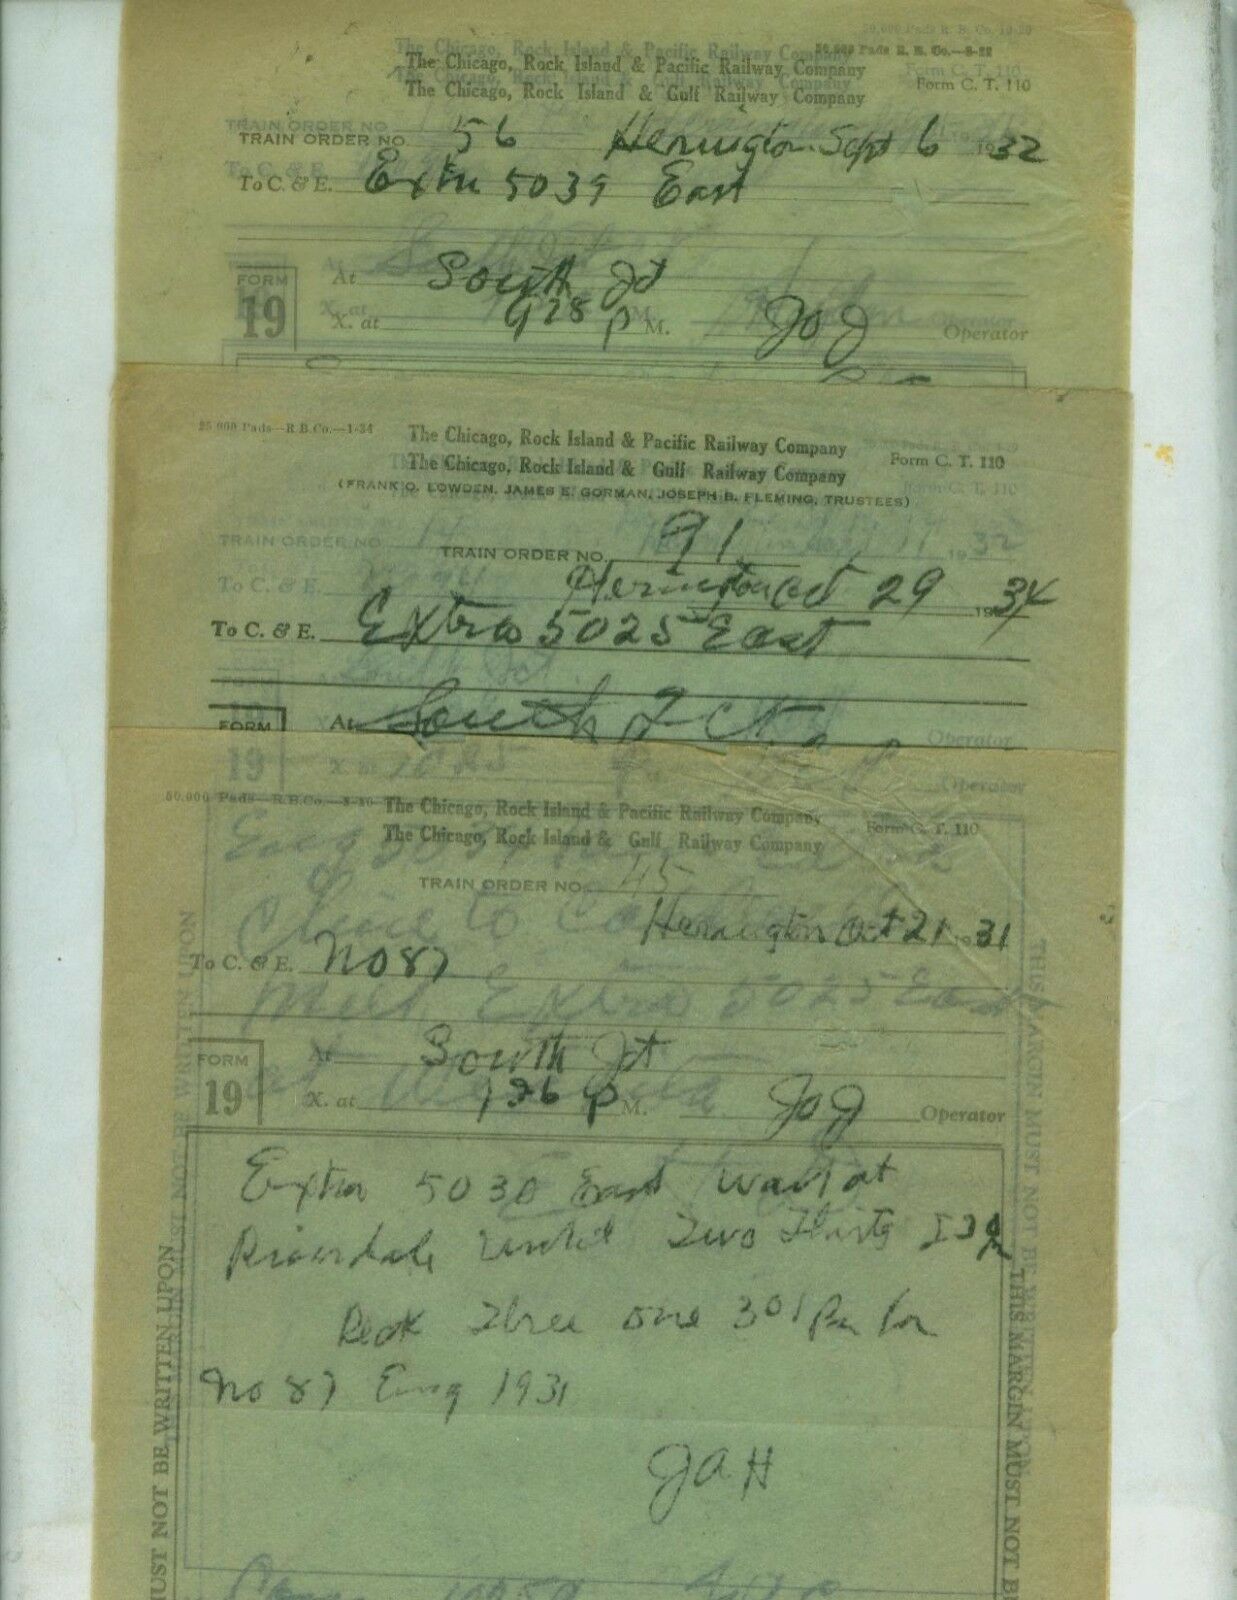 50,000 Pads R. B. Co.—8-20
The Chicago, Rock Island & Pacific Railway Company
The Chicago, Rock Island & Gulf Railway Company
Form C. T. 110
TRAIN ORDER NO. 56 Herington Sept 6 1932
To C. & E. Extra 5039 East
At South Jct
FORM 19
X. at 928 P M. JoJ Operator
25 000 Pads—R.B.Co.—1-34
The Chicago, Rock Island & Pacific Railway Company
The Chicago, Rock Island & Gulf Railway Company
Form C. T. 110
(FRANK O. LOWDEN, JAMES E. GORMAN, JOSEPH B. FLEMING, TRUSTEES)
TRAIN ORDER NO. 91
Herington Oct 29 1934
To C. & E. Extra 5025 East
FORM
At South Jct
50,000 Pads—R.B.Co.—3-30
The Chicago, Rock Island & Pacific Railway Company
The Chicago, Rock Island & Gulf Railway Company
Form C. T. 110
TRAIN ORDER NO. 45
Herington Oct 21 1931
To C. & E. No 87
FORM 19
At South Jct
X. at 126 P M. JoJ Operator
Extra 5030 East wait at
Riverdale until Two Thirty 230
Three one 301 Pm for
No 87 Eng 1931
JAH
MUST NOT BE WRITTEN UPON
THIS MARGIN MUST NOT B